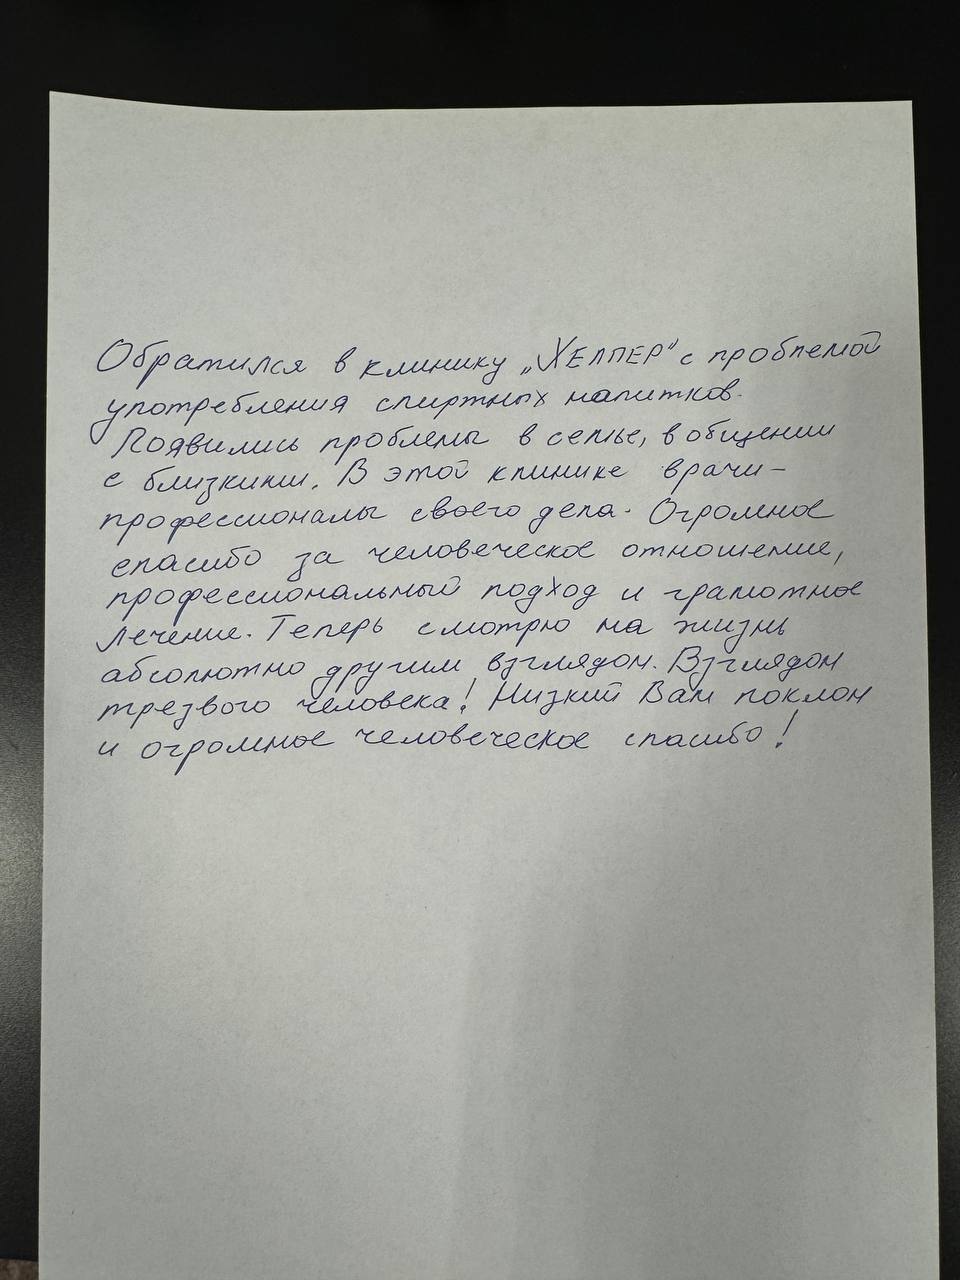 Обратился в клинику „ХЕЛПЕР" с проблемой
употребления спиртных напитков.
Появились проблемы в семье, в общении
с близкими. В этой клинике врачи-
профессионалы своего дела. Огромное
спасибо за человеческое отношение,
профессиональный подход и грамотное
лечение. Теперь смотрю на жизнь
абсолютно другим взглядом. Взглядом
трезвого человека! Низкий Вам поклон
и огромное человеческое спасибо!